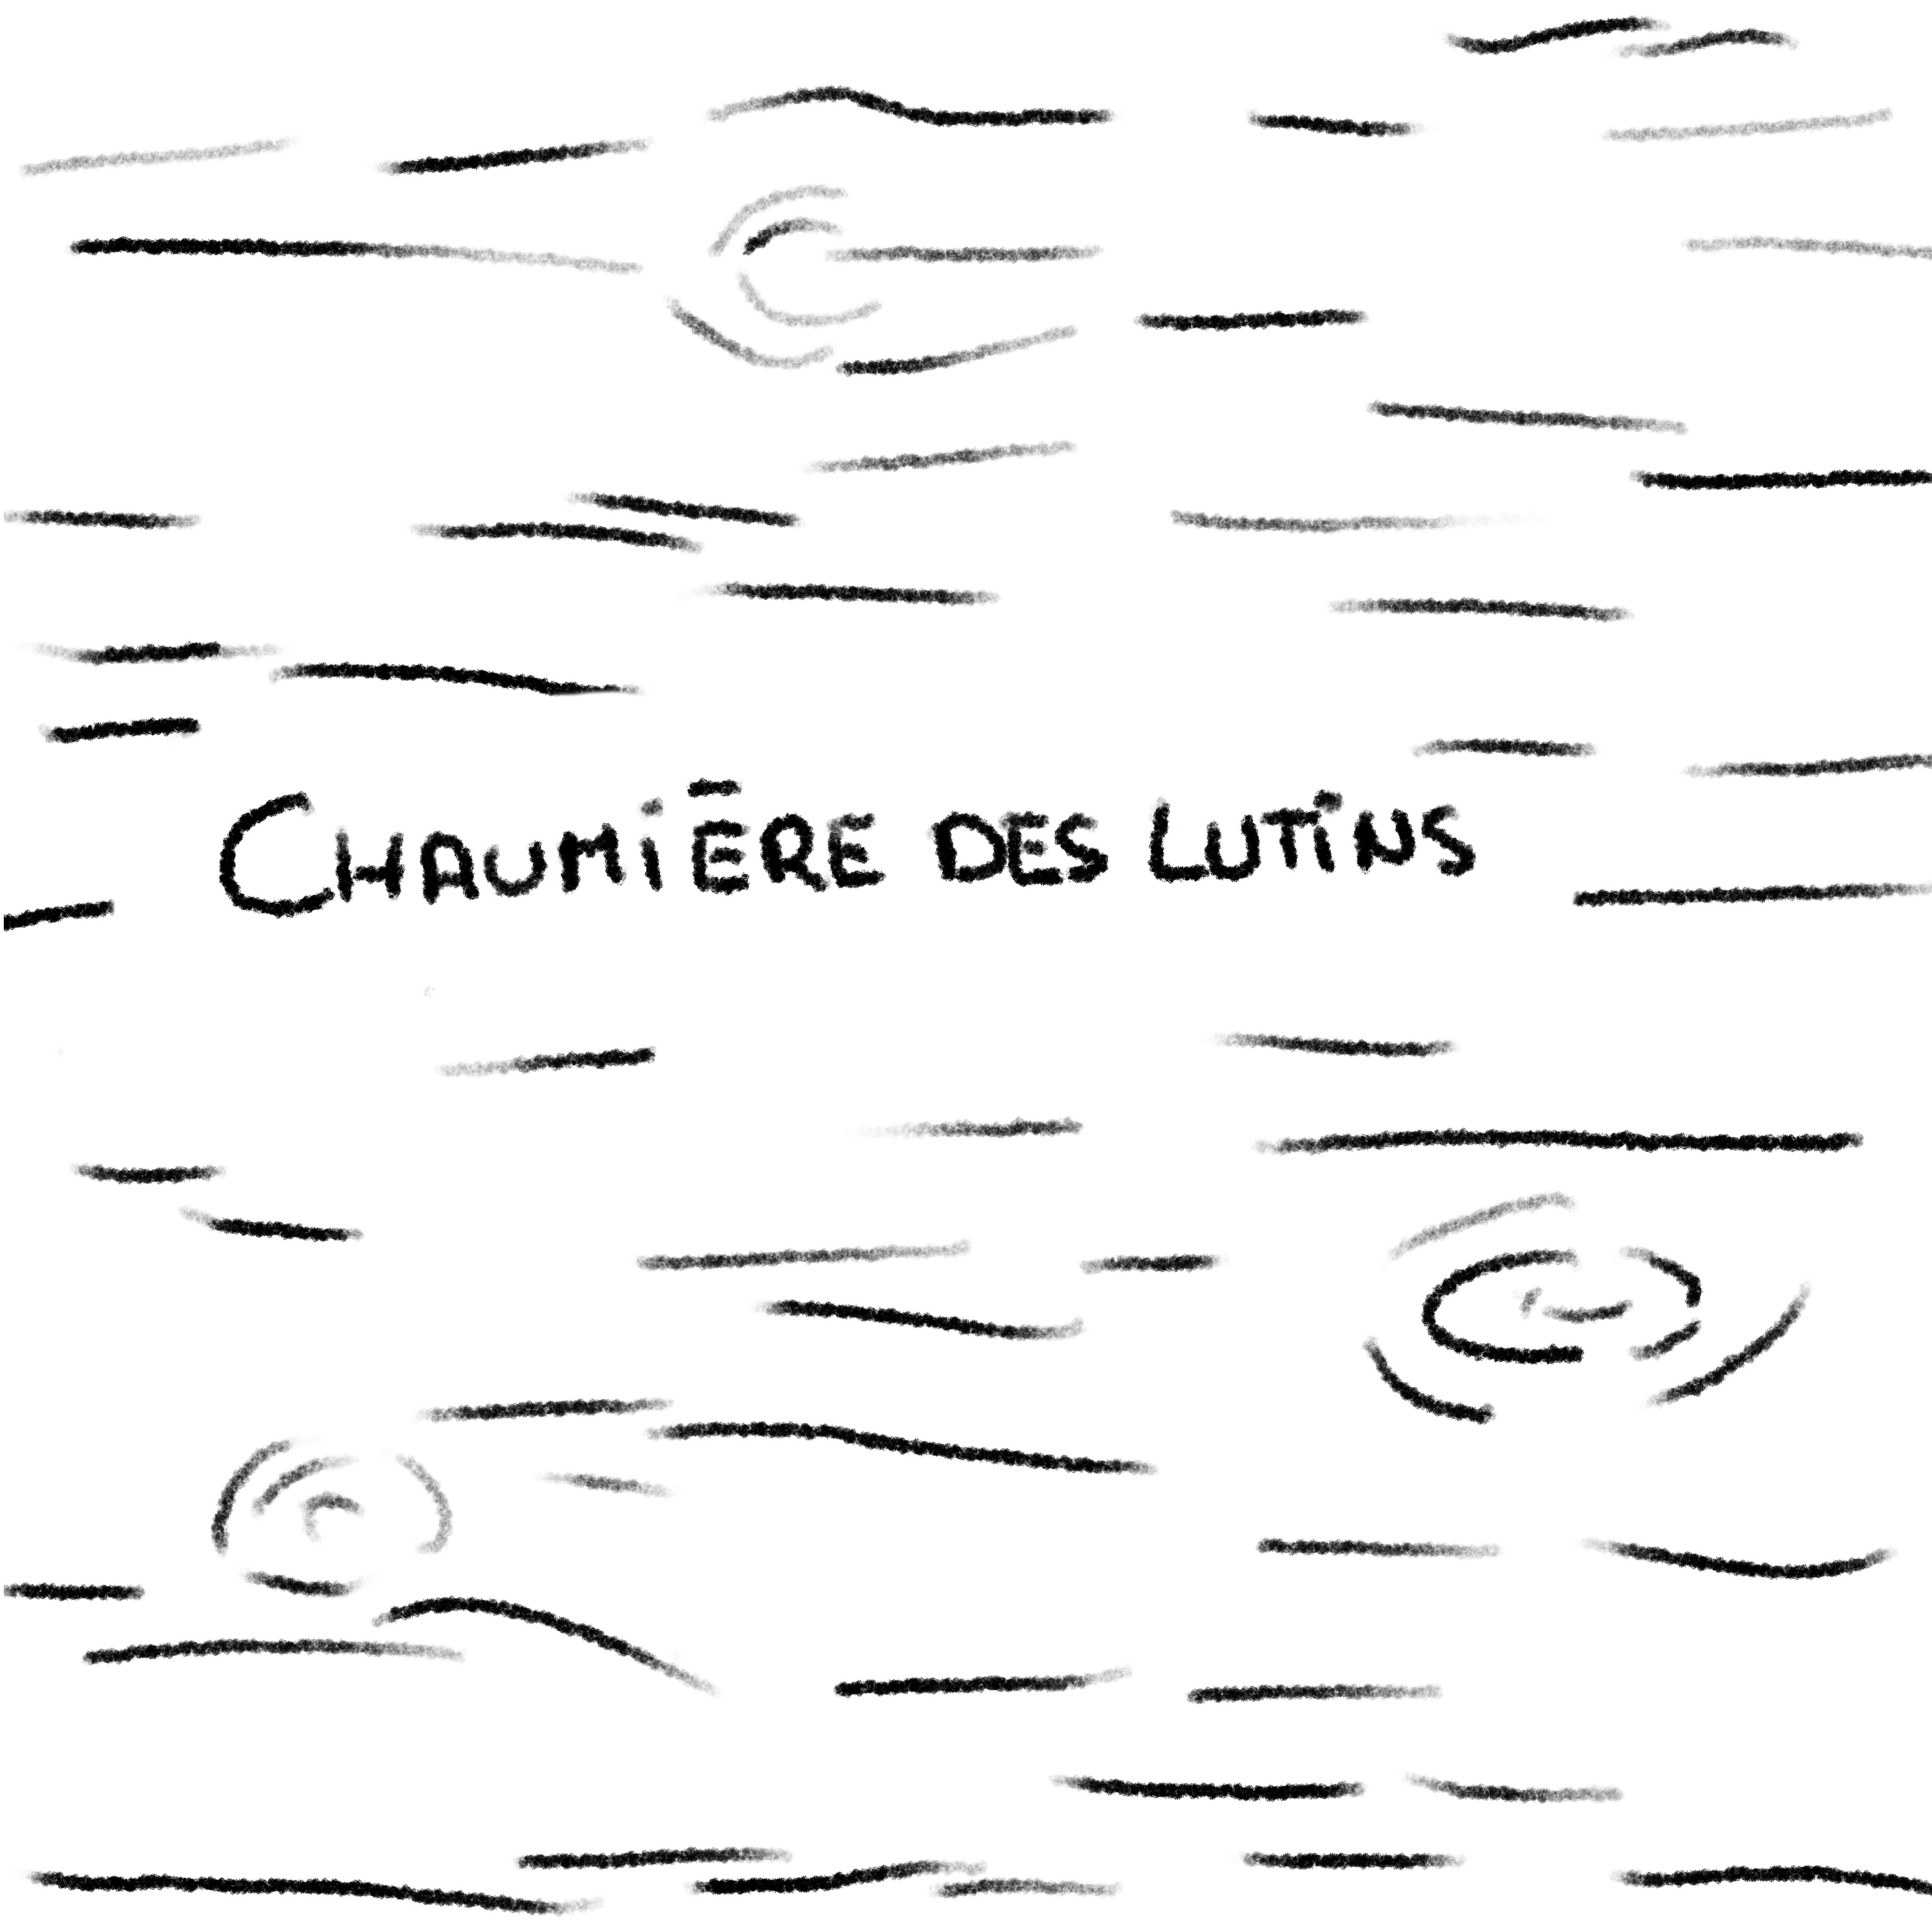 CHAUMiĒRE DES LUTiNS